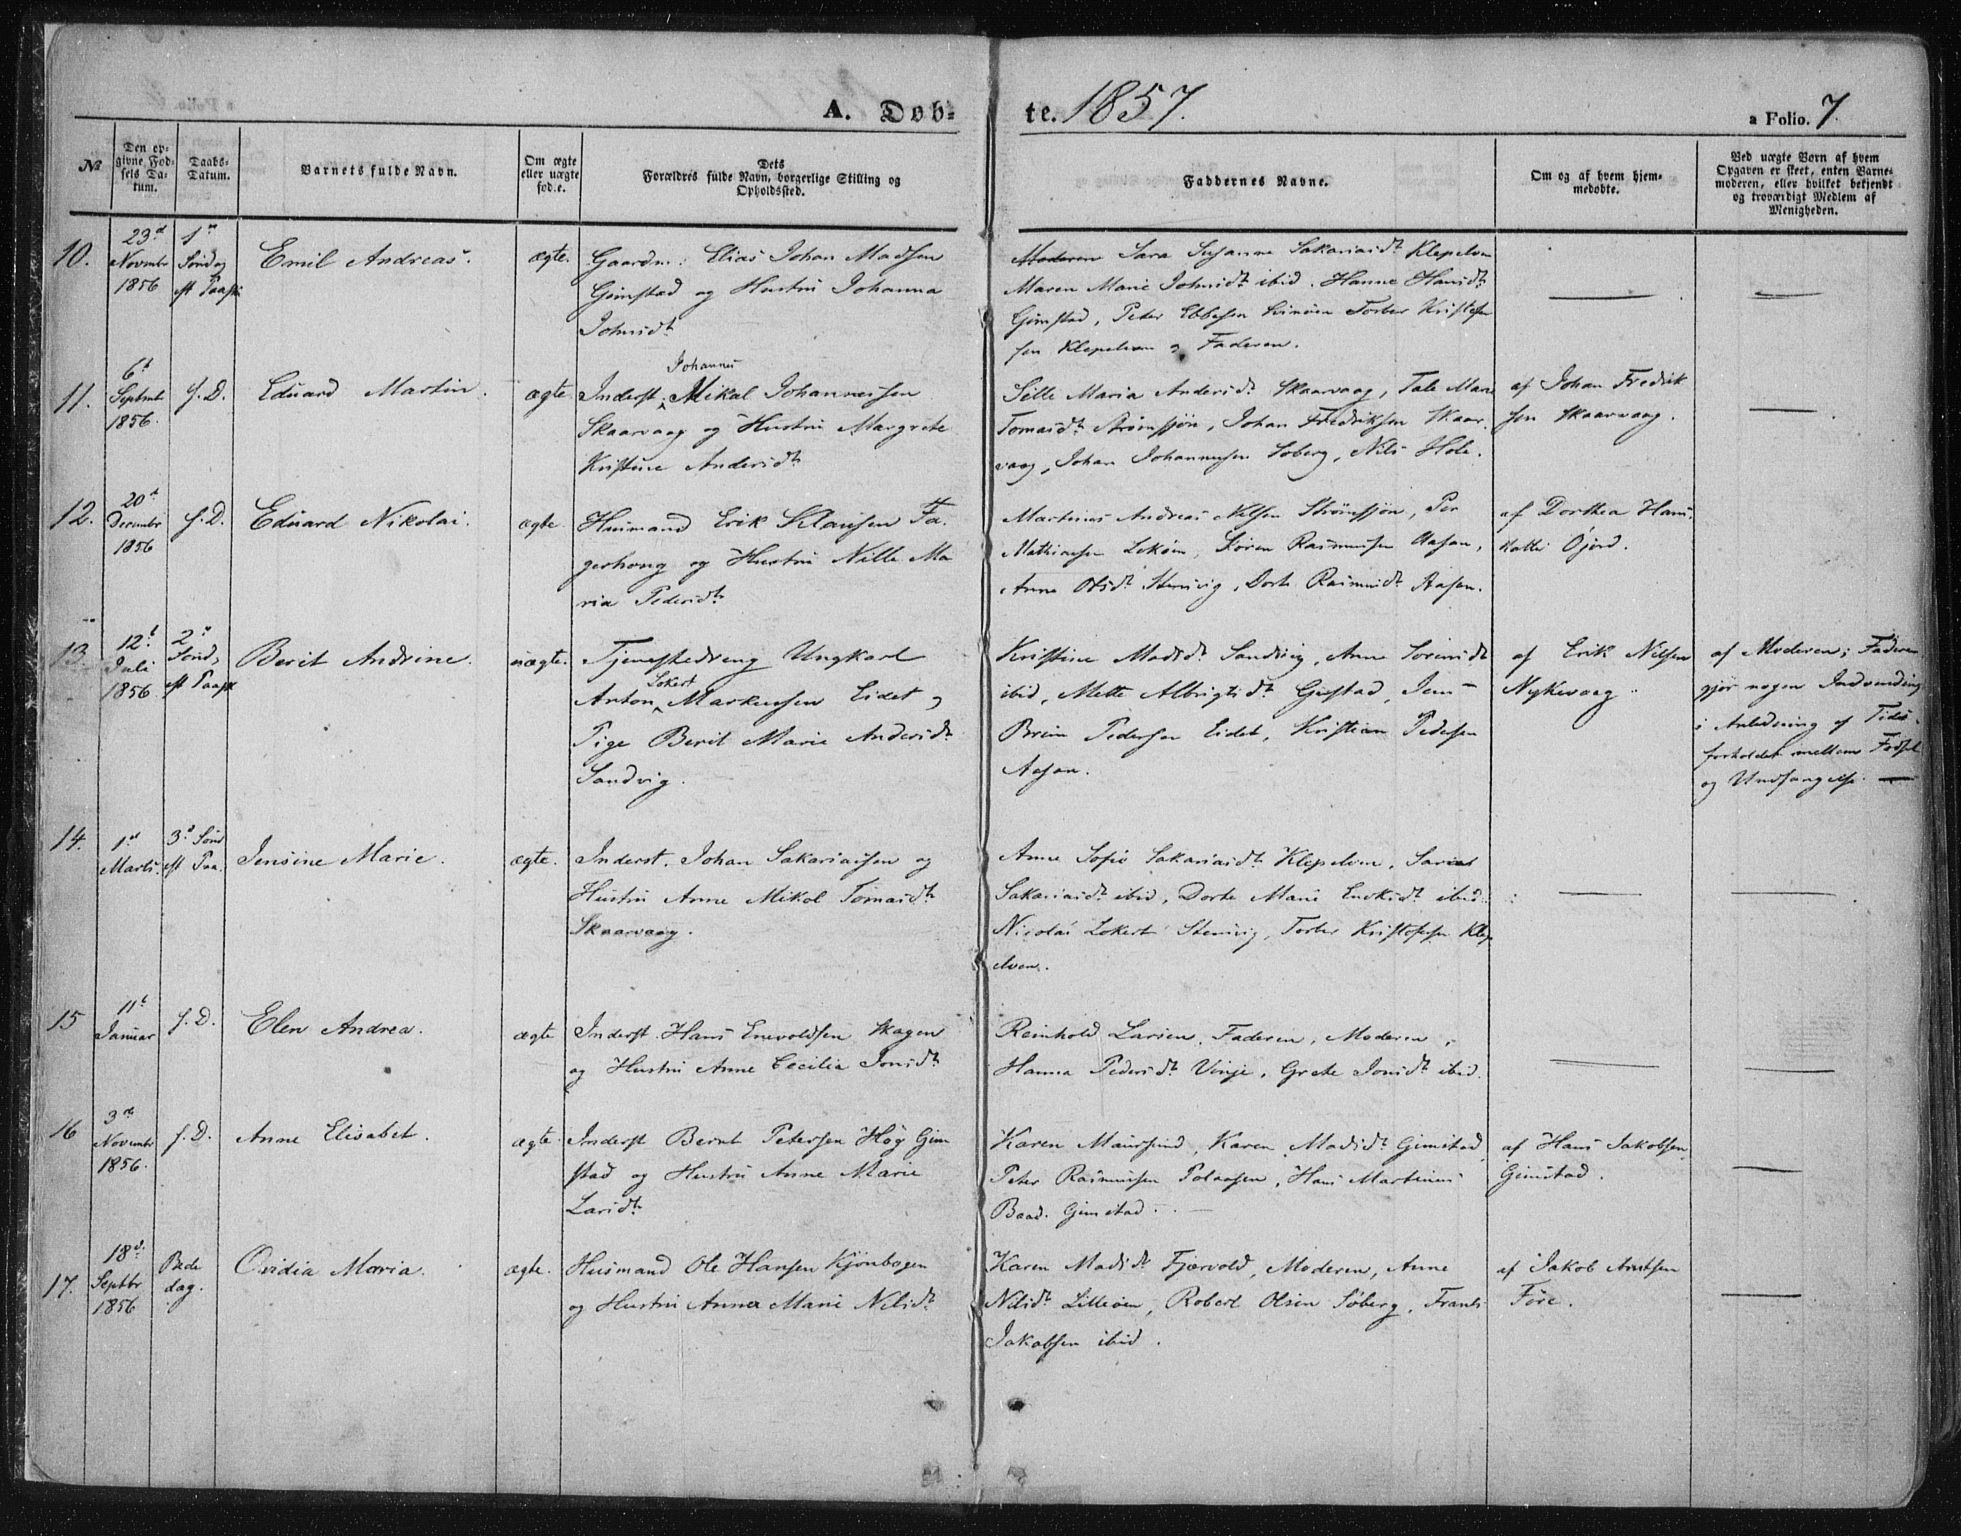 A. Døb-
te. 1857.
a Folio. 7.
№
Den op-
givne Fød-
sels Da-
tum.
Daabs-
Datum.
Barnets fulde Navn.
Om ægte
eller uægte
fød.e.
Dets
Forældres fulde Navn, borgerlige Stilling og
Opholdssted.
Faddernes Navne.
Om og af hvem hjem-
medøbte.
Ved uægte Børn af hvem
Opgaven er skeet, enten Barne-
moderen, eller hvilket bekjendt
og troværdigt Medlem af
Menigheden.
10.
23d
Novembr
1856
1n
Søndag
eft Paaske
Emil Andreas.
ægte.
Gaardm: Elias Johan Madssen
Gimstad og Hustru Johanna
Johnsdt
Moderen Sara Susanna Sakariasdt Klepelven
Maren Marie Johnsdt ibid. Hanne Hansdt
Gimstad, Peter Ebbesen Torber Kristof
sen Klepelven og Faderen.
11.
6t
Septmb
1856.
s. D.
Eduard Martin.
ægte
Johannes
Inderst. Mikal Johannessen
Skaarvaag og Hustru Margrete
Kristine Andersdt
Sille Maria Andersdt Skaarvaag, Tale Marie
Tomasdt Strømsjøn, Johan Fredriksen Skaar-
vaag, Johan Johannessen Søberg, Nils Hole.
af Johan Fredrik
sen Skaarvaag.
12.
20d
Decembr
1856
s. D.
Eduard Nikolai.
ægte
Husmand Erik Klausen Fa-
gerhoug og Hustru Nille Ma
ria Pedersdt
Martinus Andreas Nilsen Strømsjøn, Per
Mathiassen, Søren Rasmussen Aasen,
Anne Olsdt Stenvig, Dorte Rasmusdt Aasen.
af Dorthea Hans-
datter Øjord.
13.
12t
Juli
1856
2n
Sønd.
eft Paask
Berit Andrine.
uægte.
Tjenestedreng Ungkarl
Lokert
Anton Markussen Eidet og
Pige Berit Marie Andersdt
Sandvig.
Kristine Madsdt Sandvig, Ane Sørensdt
ibid, Mette Albrigtsdt Gustad, Jens
Brun Pedersen Eidet, Kristian Pedersen
Aasen.
af Erik Nilsen
Nykvaag.
af Moderen; Faderen
gjør nogen Indvending
i Anledning af Tids-
forholdet mellem Fødsel
og Undfangelse.
14.
1st
Marts.
3d Sønd
eft Paa.
Jensine Marie.
ægte.
Inderst. Johan Sakariassen og
Hustru Anne Mikol Tomasdt
Skaarvaag.
Anne Sofie Sakariasdt Klepelven,
Sakariasdt ibid, Dorte Marie ibid.
Nicolai Lokert Stenvig, Torber Kristofersen Klep
elven.
15
11t
Januar
s. D.
Elen Andrea.
ægte
Inderst. Hans Enevoldsen Skagen
og Hustru Anne Cecilia Jonsdt
Reinhold Larsen, Faderen, Moderen,
Hanna Pedersdt Vinje, Grete Jonsdt ibid.
16
3die
Novembr
1856.
s. D.
Anne Elisabet.
ægte.
Inderst Bernt Petersen Høg Gim
stad og Hustru Anne Marie
Larsdt
Karen Maursund, Karen Madsdt Gimstad
Peter Rasmussen Polaasen, Hans Martinus
Baad. Gimstad.
af Hans Jakobsen
Gimstad.
17.
18d.
Septbr
1856
Bede
dag.
Ovidia Maria.
ægte.
Husmand Ole Hansen Kjønbogen
og Hustru Anna Marie Nilsdt
Karen Madsdt Fjærvold, Moderen, Anne
Nilsdt Lilleøen, Robert Olsen Søberg, Frants
Jakobsen ibid.
af Jakob Arntsen
Føre.